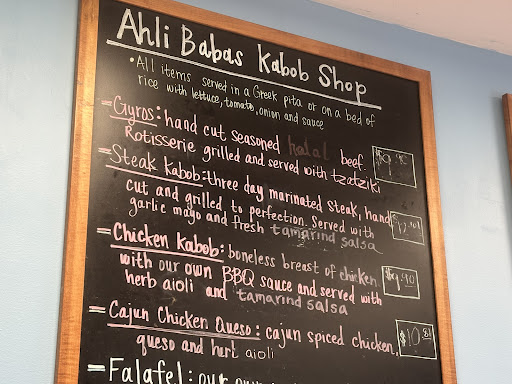 Ahli Babas Kabob Shop
• All items served in a Greek pita or on a bed of
rice with lettuce, tomato, onion and sauce
= Gyros: hand cut seasoned halal beef.
Rotisserie grilled and served with tzatziki
= Steak Kabob: three day marinated steak, hand
cut and grilled to perfection. Served with
garlic mayo and fresh tamarind salsa
= Chicken Kabob: boneless breast of chicken
with our own BBQ sauce and served with
herb aioli and tamarind salsa
$9.90
= Cajun Chicken Queso: cajun spiced chicken,
queso and herb aioli
$10.81
= Falafel: our own